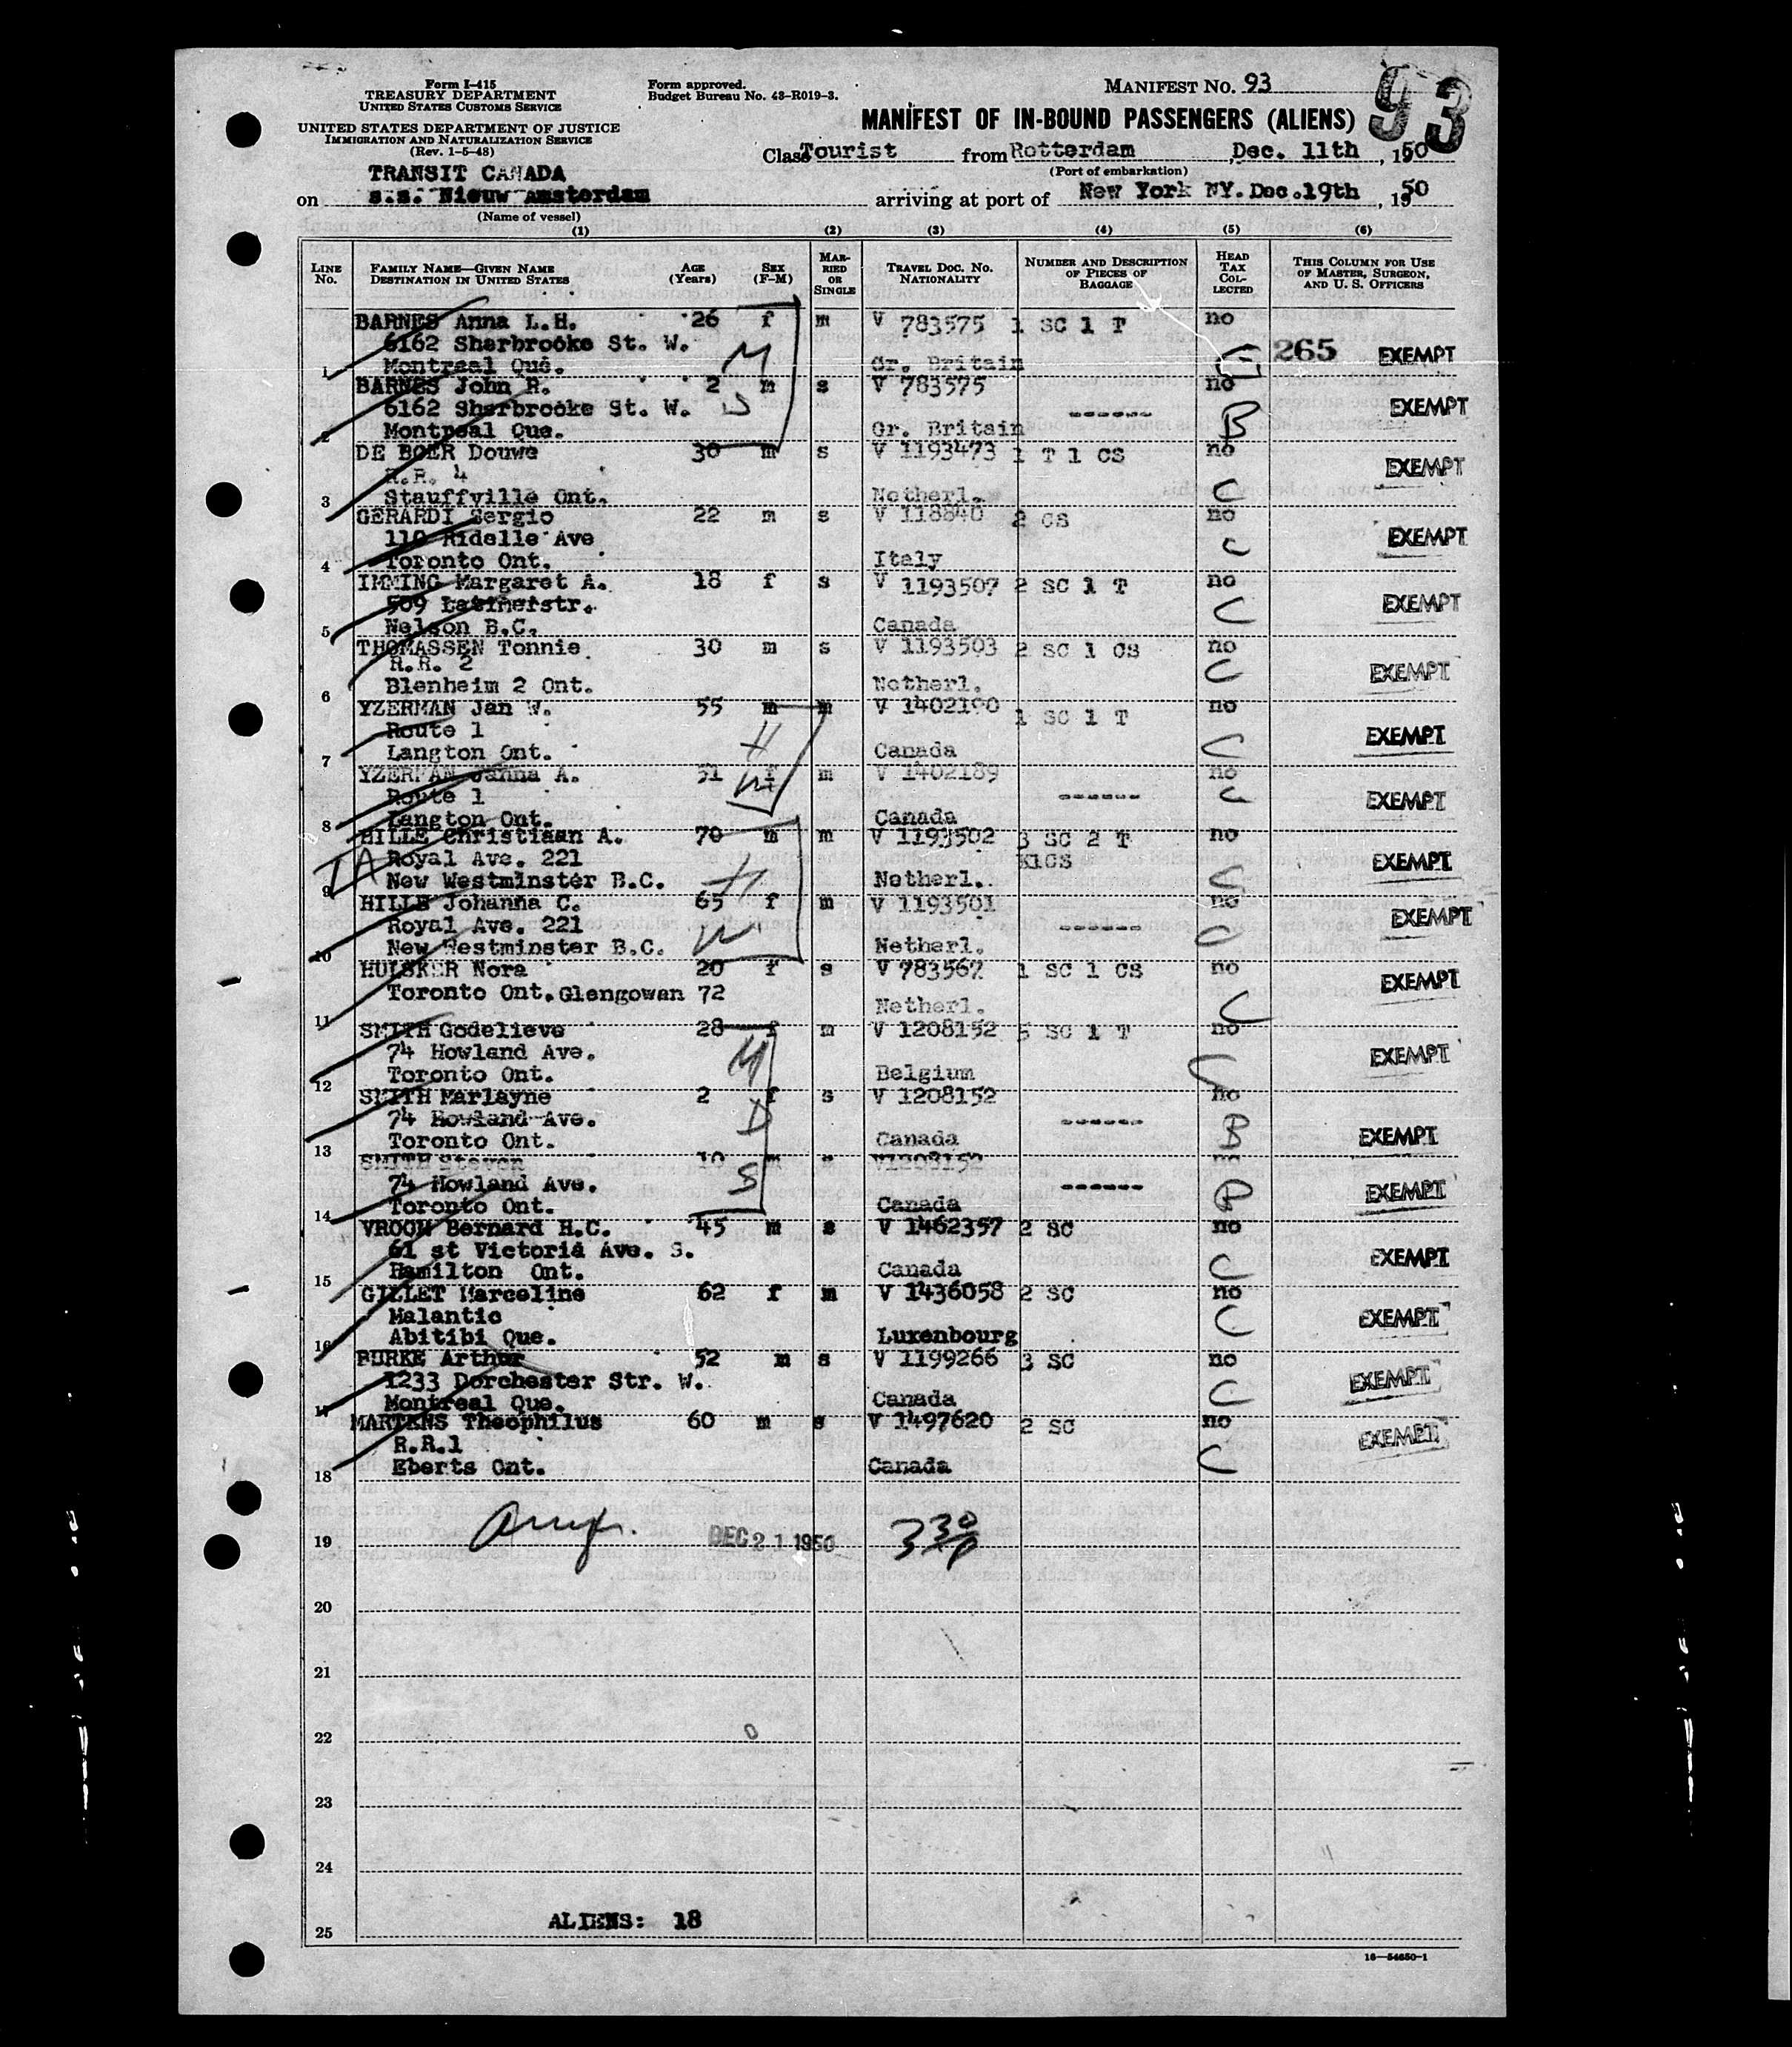 Form I-415
TREASURY DEPARTMENT
UNITED STATES CUSTOMS SERVICE
UNITED STATES DEPARTMENT OF JUSTICE
IMMIGRATION AND NATURALIZATION SERVICE
(Rev. 1-5-48)
Form approved.
Budget Bureau No. 43-R019-3.
MANIFEST NO. 93
93
MANIFEST OF IN-BOUND PASSENGERS (ALIENS)
Class Tourist from Rotterdam, Dec. 11th, 1950
(Port of embarkation)
TRANSIT CANADA
on s.s. Nieuw Amsterdam arriving at port of New York NY. Dec. 19th, 1950
(Name of vessel)
(1) (2) (3) (4) (5) (6)
LINE NO. FAMILY NAME—GIVEN NAME DESTINATION IN UNITED STATES AGE (YEARS) SEX (F-M) MARRIED OR SINGLE TRAVEL DOC. NO. NATIONALITY NUMBER AND DESCRIPTION OF PIECES OF BAGGAGE HEAD TAX COLLECTED THIS COLUMN FOR USE OF MASTER, SURGEON, AND U. S. OFFICERS
BARNES Anna L.H. 26 f m V 783575 1 SC 1 T no
6162 Sherbrooke St. W. M 265 EXEMPT
1 Montreal Que. Gr. Britain
BARNES John R. 2 m s V 783575 no
6162 Sherbrooke St. W. ------ B EXEMPT
2 Montreal Que. Gr. Britain
DE BOER Douwe 30 m s V 1193473 1 T 1 CS no
R.R. 4 EXEMPT
3 Stauffville Ont. Netherl. C
GERARDI Sergio 22 m s V 118840 2 CS no
110 Ridelle Ave C EXEMPT
4 Toronto Ont. Italy
IMMING Margaret A. 18 f s V 1193507 2 SC 1 T no
509 Latinerstr. C EXEMPT
5 Nelson B.C. Canada
THOMASSEN Tonnie 30 m s V 1193503 2 SC 1 CS no
R.R. 2 C EXEMPT
6 Blenheim 2 Ont. Netherl.
YZERMAN Jan W. 55 m m V 1402190 1 SC 1 T no
Route 1 H EXEMPT
7 Langton Ont. Canada C
YZERMAN Janna A. 51 f m V 1402189 no
Route 1 W ------ C EXEMPT
8 Langton Ont. Canada
HILLE Christiaan A. 70 m m V 1193502 3 SC 2 T no
Royal Ave. 221 K1CS EXEMPT
9 New Westminster B.C. H Netherl. C
HILLE Johanna C. 65 f m V 1193501 no
Royal Ave. 221 ------ C EXEMPT
10 New Westminster B.C. W Netherl.
HULSKER Nora 20 f s V 783567 1 SC 1 CS no
Toronto Ont. Glengowan 72 EXEMPT
11 Netherl. C
SMITH Godelieve 28 f m V 1208152 5 SC 1 T no
74 Howland Ave. M EXEMPT
12 Toronto Ont. Belgium C
SMITH Marlayne 2 f s V 1208152 no
74 Howland Ave. D ------ B EXEMPT
13 Toronto Ont. Canada
SMITH Steven 10 m s V1208152 no
74 Howland Ave. S ------ B EXEMPT
14 Toronto Ont. Canada
VROOM Bernard H.C. 45 m s V 1462357 2 SC no
61 st Victoria Ave. S. EXEMPT
15 Hamilton Ont. Canada C
GILLET Marceline 62 f m V 1436058 2 SC no
Malantic C EXEMPT
16 Abitibi Que. Luxenbourg
BURKE Arthur 52 m s V 1199266 3 SC no
1233 Dorchester Str. W. EXEMPT
17 Montreal Que. Canada C
MARTENS Theophilus 60 m s V 1497620 2 SC no
R.R.1 EXEMPT
18 Eberts Ont. Canada C
19 DEC 21 1950 3 30
20
21
22
23
24
ALIENS: 18
25
16—54650-1